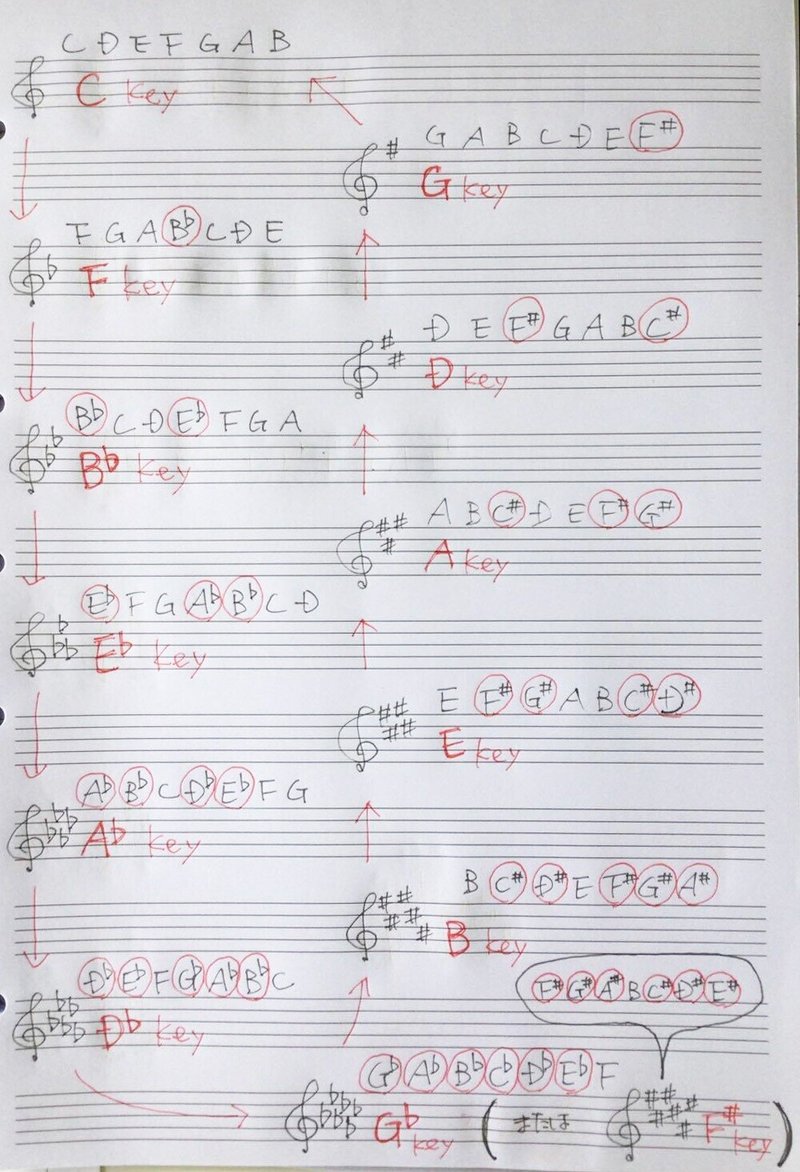 C D E F G A B
C key
G A B C D E F#
G key
F G A B♭ C D E
F key
D E F# G A B C#
D key
B♭ C D E♭ F G A
B♭ key
A B C# D E F# G#
A key
E♭ F G A♭ B♭ C D
E♭ key
E F# G# A B C# D#
E key
A♭ B♭ C D♭ E♭ F G
A♭ key
B C# D# E F# G# A#
B key
D♭ E♭ F G♭ A♭ B♭ C
D♭ key
F# G# A# B C# D# E#
G♭ A♭ B♭ C♭ D♭ E♭ F
G♭ key ( または F# key )